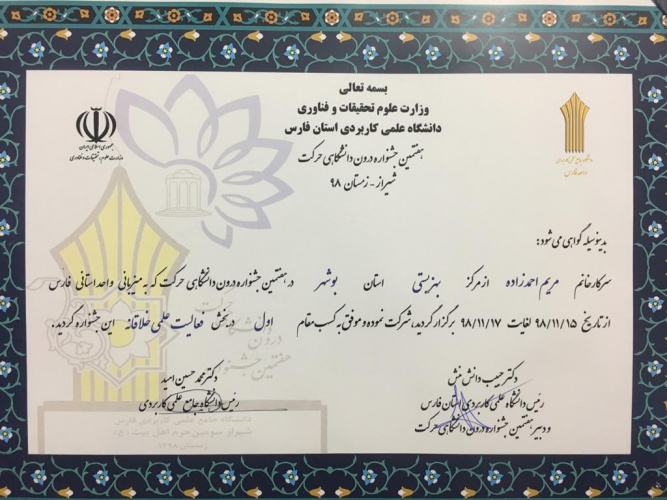 بسمه تعالی
وزارت علوم تحقیقات و فناوری
دانشگاه علمی کاربردی استان فارس
هفتمین جشنواره درون دانشگاهی حرکت
شیراز - زمستان ۹۸
جمهوری اسلامی ایران
وزارت علوم، تحقیقات و فناوری
دانشگاه جامع علمی کاربردی
واحد فارس
بدینوسیله گواهی می شود:
سرکار خانم مریم احمدزاده از مرکز بهزیستی استان بوشهر در هفتمین جشنواره درون دانشگاهی حرکت که به میزبانی واحد استانی فارس
از تاریخ ۹۸/۱۱/۱۵ لغایت ۹۸/۱۱/۱۷ برگزار گردید، شرکت نموده و موفق به کسب مقام اول در بخش فعالیت علمی خلاقانه این جشنواره گردید.
دکتر حبیب دانش منش
رئیس دانشگاه علمی کاربردی استان فارس
و دبیر هفتمین جشنواره درون دانشگاهی حرکت
دکتر محمد حسین امید
رئیس دانشگاه جامع علمی کاربردی
هفتمین جشنواره
درون دانشگاهی
حرکت
دانشگاه جامع علمی کاربردی فارس
شیراز سومین حرم اهل بیت (ع)
زمستان ۱۳۹۸